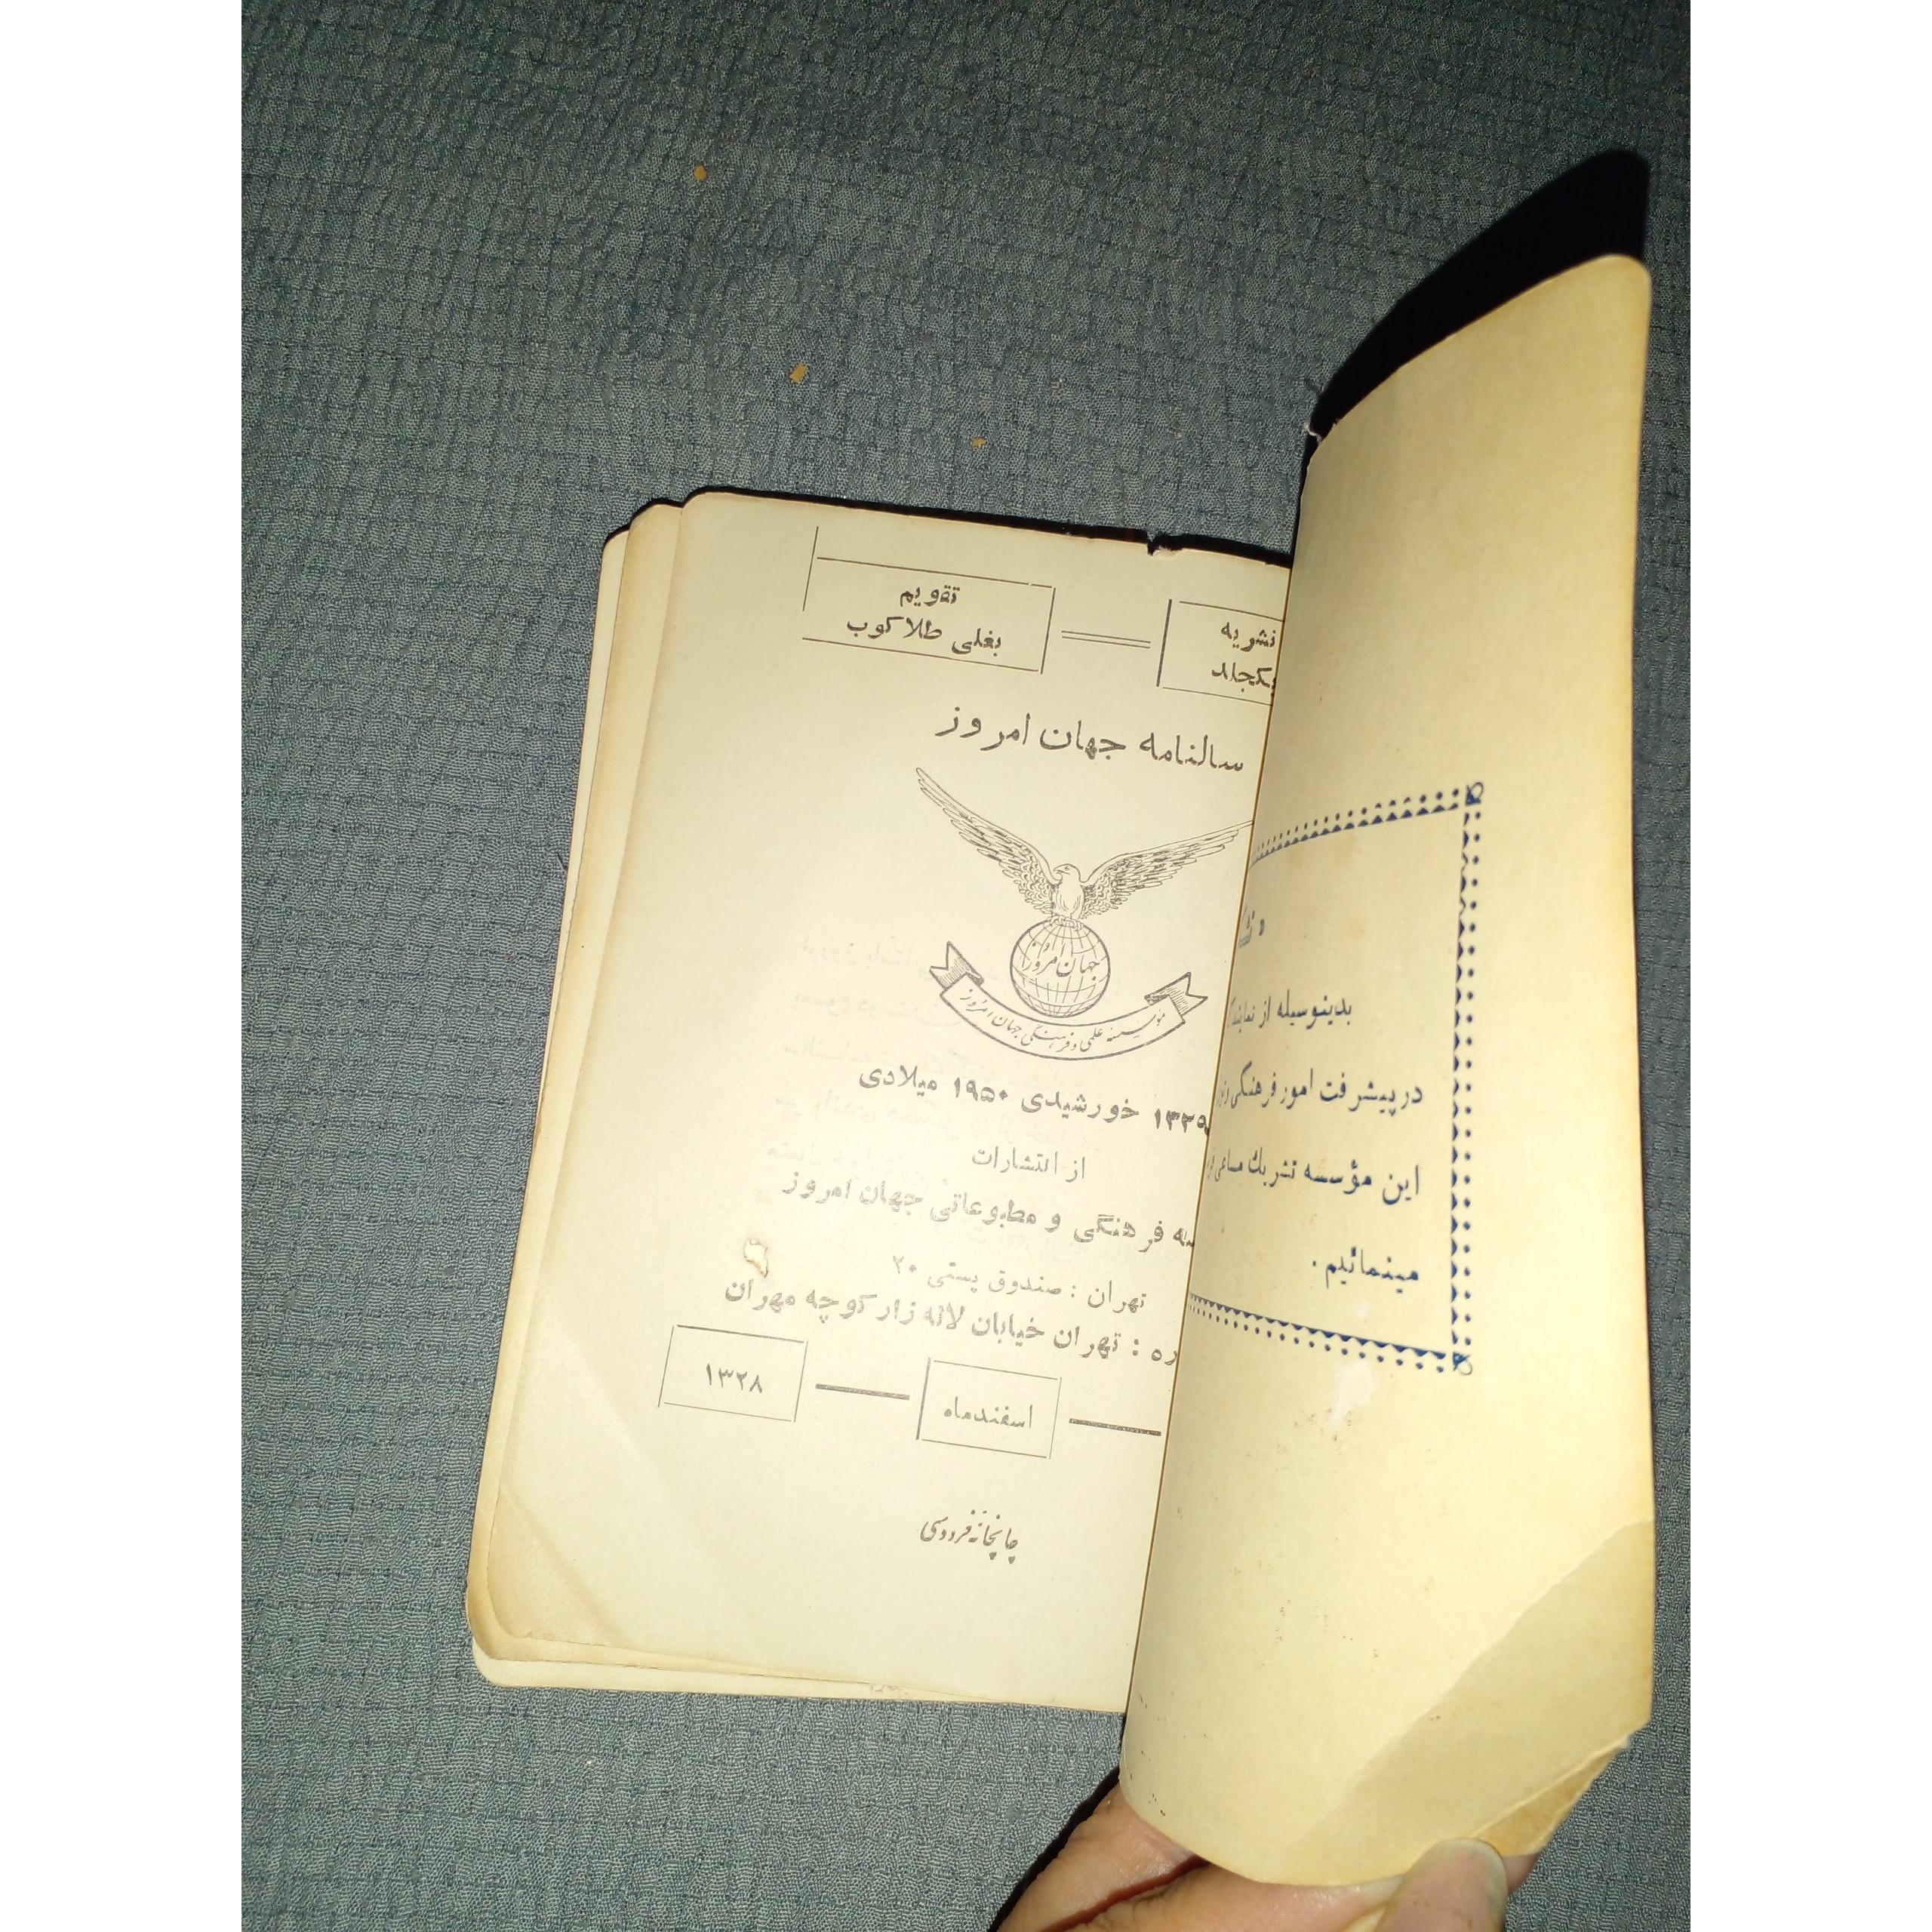 نشریه
یکجلد
تقویم
بغلی طلاکوب
سالنامه جهان امروز
جهان امروز
مؤسسه علمی و فرهنگی جهان امروز
۱۳۲۹ خورشیدی ۱۹۵۰ میلادی
از انتشارات
فرهنگی و مطبوعاتی جهان امروز
تهران : صندوق پستی ۲۰
تهران خیابان لاله زار کوچه مهران
اسفندماه
۱۳۲۸
چاپخانه فردوسی
بدینوسیله از
در پیشرفت امور فرهنگی
این مؤسسه تشریك مساعی
مینمائیم .